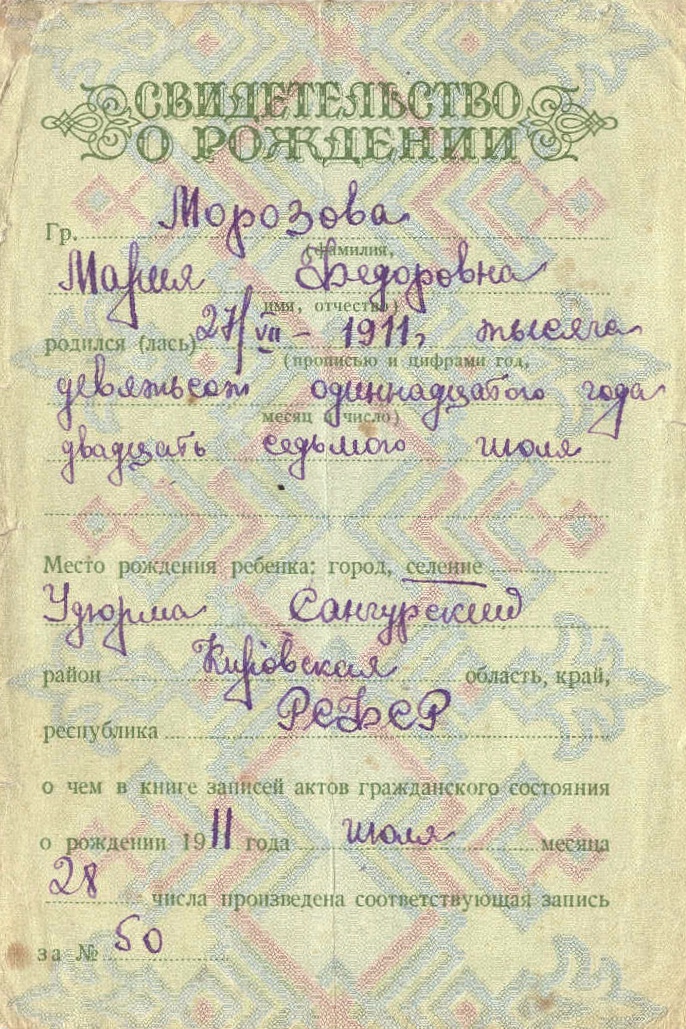 СВИДЕТЕЛЬСТВО
О РОЖДЕНИИ
Гр. Морозова
(фамилия,
Мария Федоровна
имя, отчество)
родился (лась) 27/VII – 1911, тысяча
(прописью и цифрами год,
девятьсот одиннадцатого года
месяц и число)
двадцать седьмого июля
Место рождения ребенка: город, селение
Удюрма Сангурский
район Кировская область, край,
республика РСФСР
о чем в книге записей актов гражданского состояния
о рождении 1911 года июля месяца
28 числа произведена соответствующая запись
за № 50